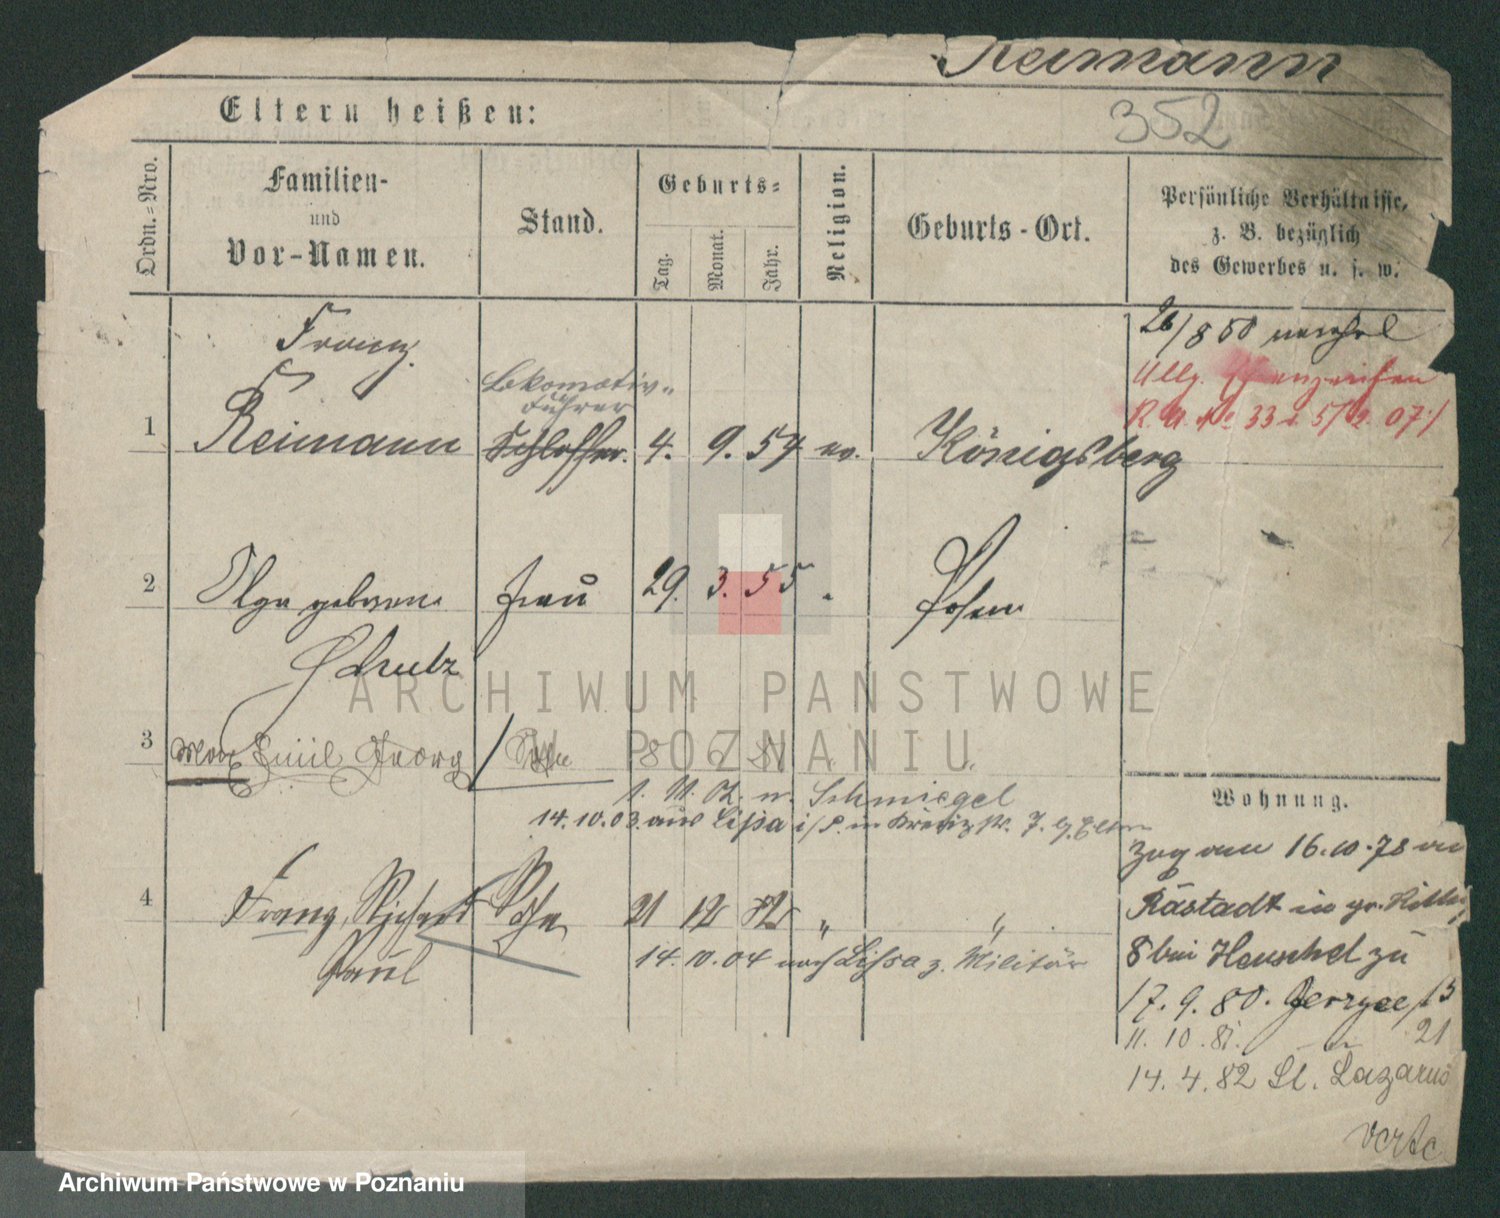 Reimann
352
Eltern heißen:
Ordn.=Nro.
Familien-
und
Vor-Namen.
Stand.
Geburts=
Tag.
Monat.
Jahr.
Religion.
Geburts-Ort.
Persönliche Verhältnisse,
z. B. bezüglich
des Gewerbes u. s. w.
1
Franz
Reimann
Lokomotiv-
Führer
Schlosser.
4. 9. 54 ev.
Königsberg
26/8 50
Allg.
R. A. No 33 5/2. 07
2
Olga geborene
Schulz
Frau
29. 3. 55
Posen
3
Max Emil Georg
Sohn
8 6 81
Schmiegel
14.10.03. aus Lissa i/P.
4
Franz, Richard
Paul
Sohn
21 12 82 " "
14. 10. 04 nach Lissa z. Militär
Wohnung.
Zog am 16.10.78 an
Rastadt in gr.
8 bei Henschel zu
17. 9. 80. Jerzyce 13
11. 10. 81. 21
14. 4. 82 St. Lazarus
verte
ARCHIWUM PAŃSTWOWE
W POZNANIU
Archiwum Państwowe w Poznaniu